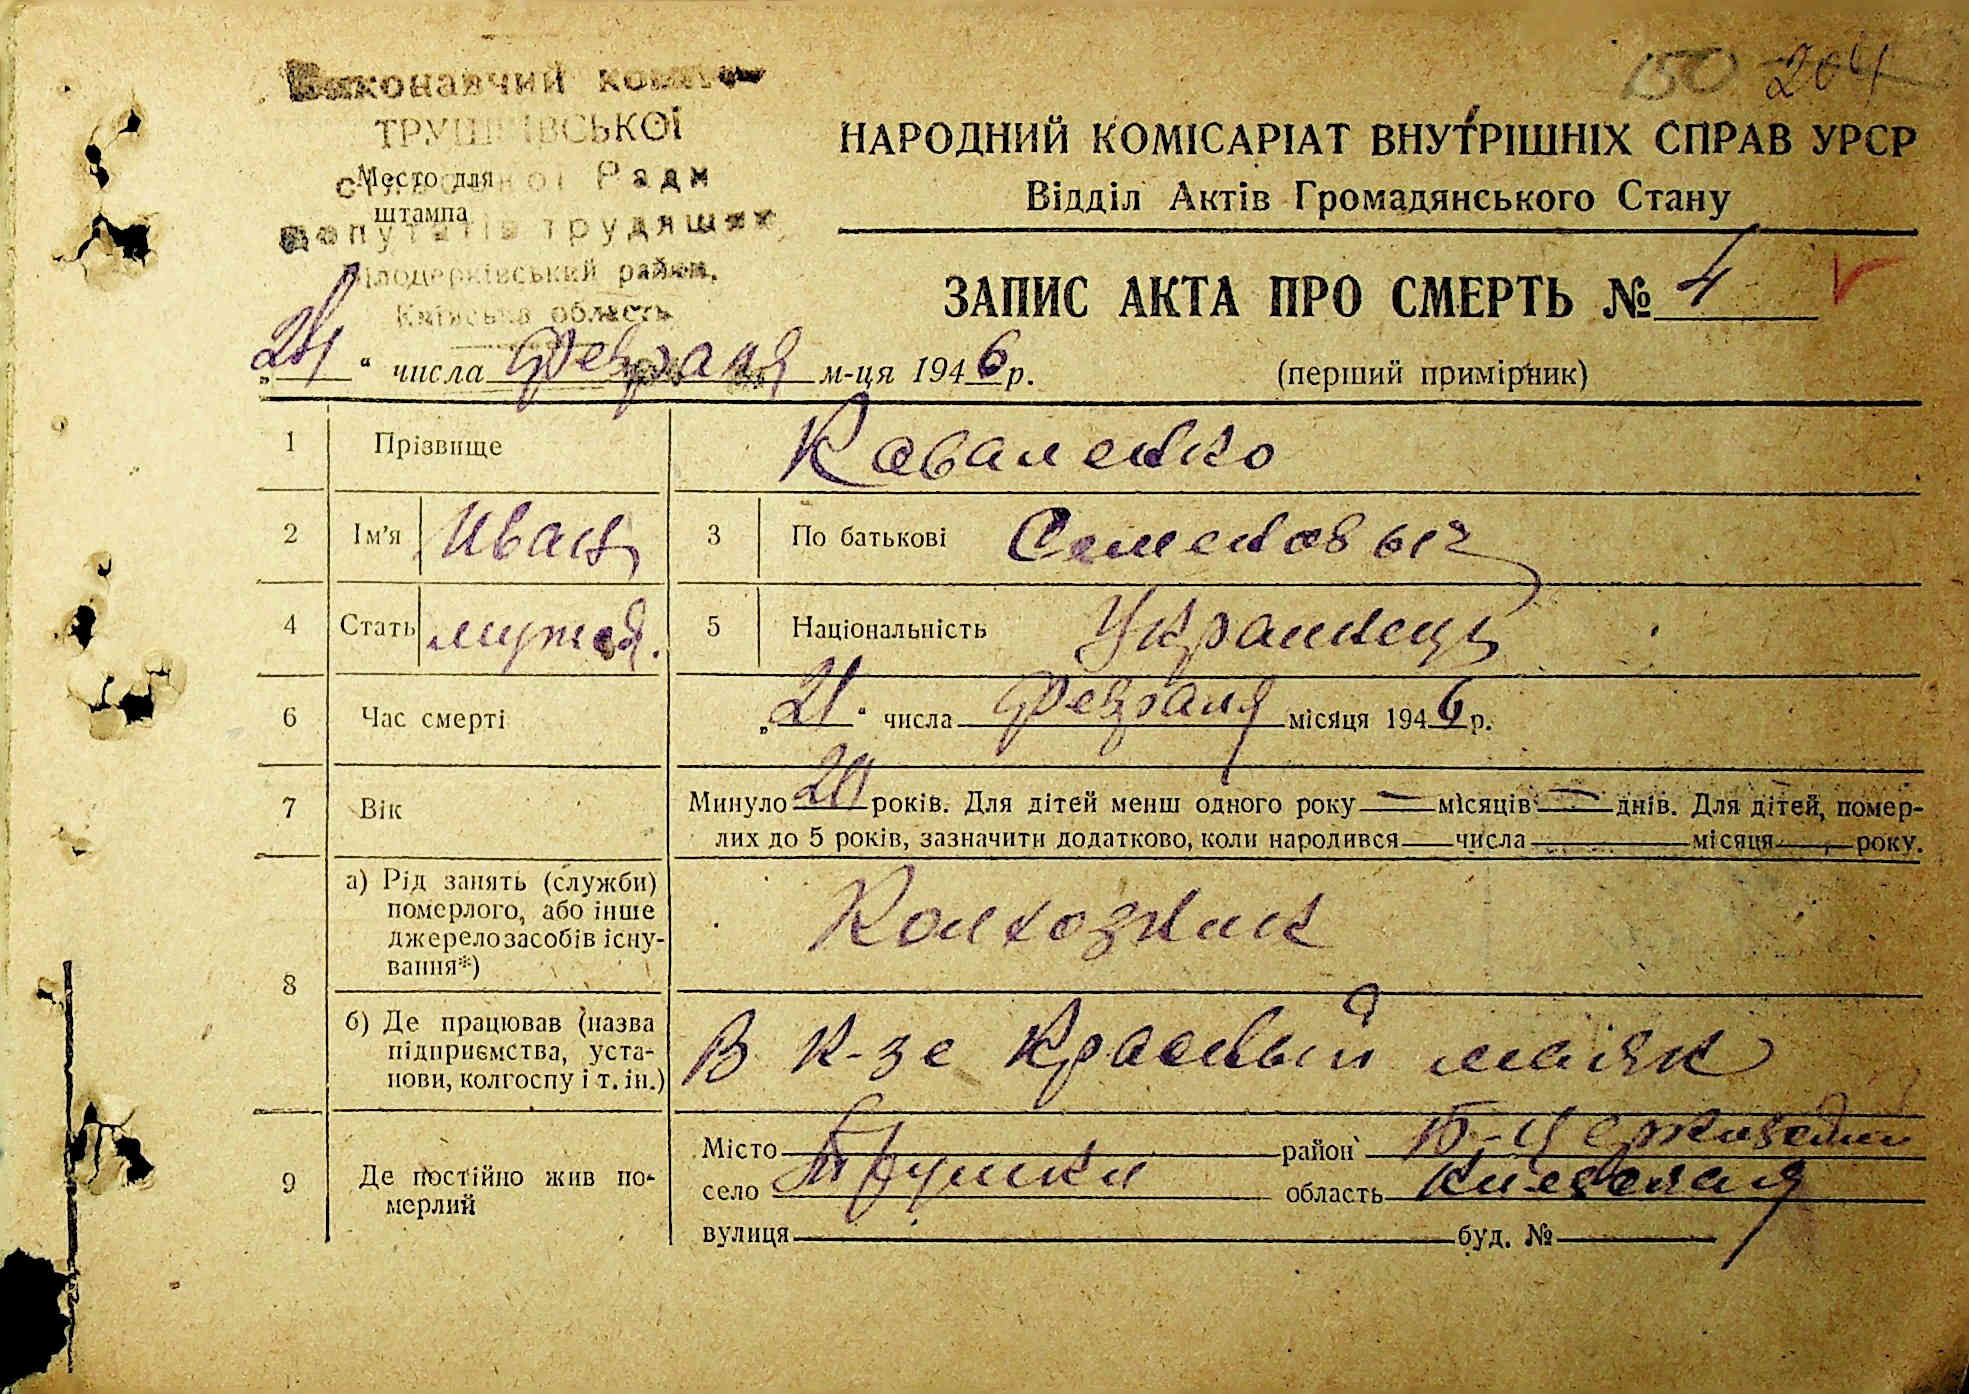 150 204
Виконавчий комітет
ТРУШКІВСЬКОЇ
сільської Ради
Место для
штампа
депутатів трудящих,
Білоцерківський район,
Київська область
НАРОДНИЙ КОМІСАРІАТ ВНУТРІШНІХ СПРАВ УРСР
Відділ Актів Громадянського Стану
ЗАПИС АКТА ПРО СМЕРТЬ № 4
„24“ числа Февраля м-ця 1946 р.
(перший примірник)
1 Прізвище Коваленко
2 Ім'я Иван 3 По батькові Семенович
4 Стать мужск. 5 Національність Украинец
6 Час смерті „21“ числа Февраля місяця 1946 р.
7 Вік Минуло 20 років. Для дітей менш одного року — місяців — днів. Для дітей, помер-
лих до 5 років, зазначити додатково, коли народився числа місяця року.
8 а) Рід занять (служби)
померлого, або інше
джерело засобів існу-
вання*)
Колхозник
б) Де працював (назва
підприємства, уста-
нови, колгоспу і т. ін.)
В к-зе Красный маяк
9 Де постійно жив по-
мерлий
Місто район Б-Церковский
село Трушки область Киевская
вулиця буд. №